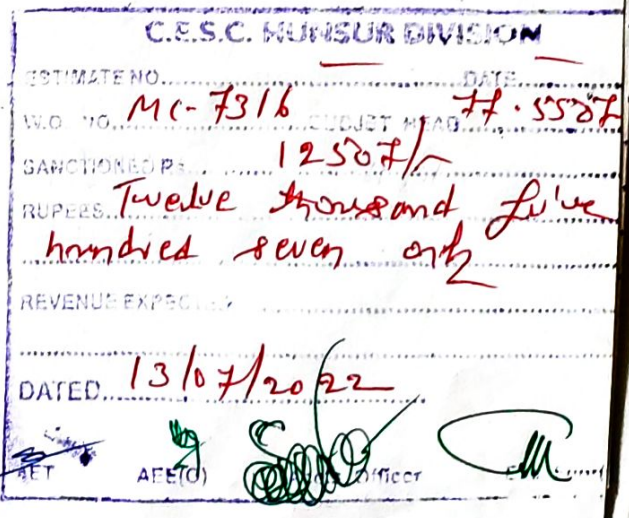 C.E.S.C. HUNSUR DIVISION
ESTIMATE NO. DATE
W.O. NO. MC-7316 BUDJET HEAD 77.5507
SANCTIONED Rs. 12507/-
RUPEES Twelve thousand five
hundred seven only
REVENUE EXPECTED
DATED 13/07/2022
AET AEE(O) Officer